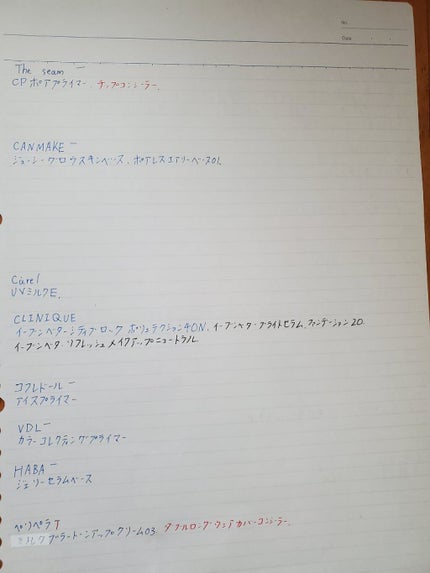 No.
Date
The seam
CPポアプライマー、チップコンシーラー、
CANMAKE
ジューシーグロウスキンベース、ポアレスエアリーベース01、
Curel
UVミルクE、
CLINIQUE
イーブンベターシティブロックポリュテクション40N、イーブンベターブライトセラム ファンデーション20
イーブンベターリフレッシュメイクアップニュートラル
コフレドール
アイスプライマー
VDL
カラーコレクティングプライマー
HABA
ジェリーセラムベース
ペリペラT
ミルクブラートーンアップクリーム03、ダブルロングウェアカバーコンシーラー、